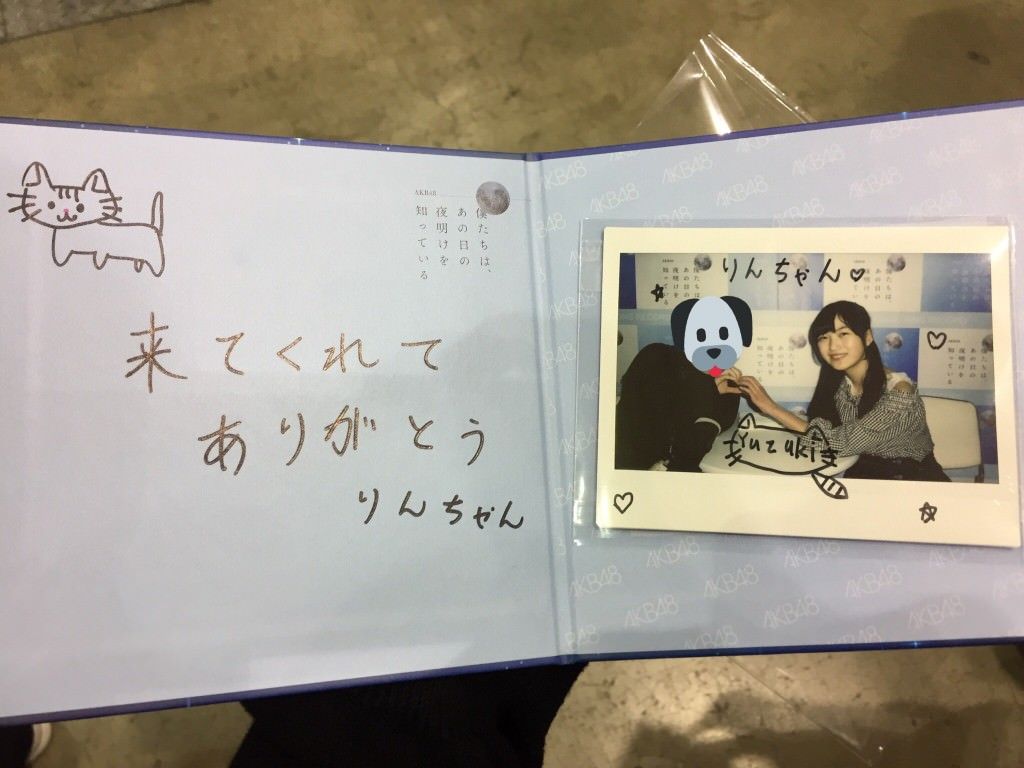 AKB48
僕たちは、
あの日の
夜明けを
知っている
来てくれて
ありがとう
りんちゃん
りんちゃん
Yuzuki
AKB48
AKB48
AKB48
AKB48
AKB48
AKB48